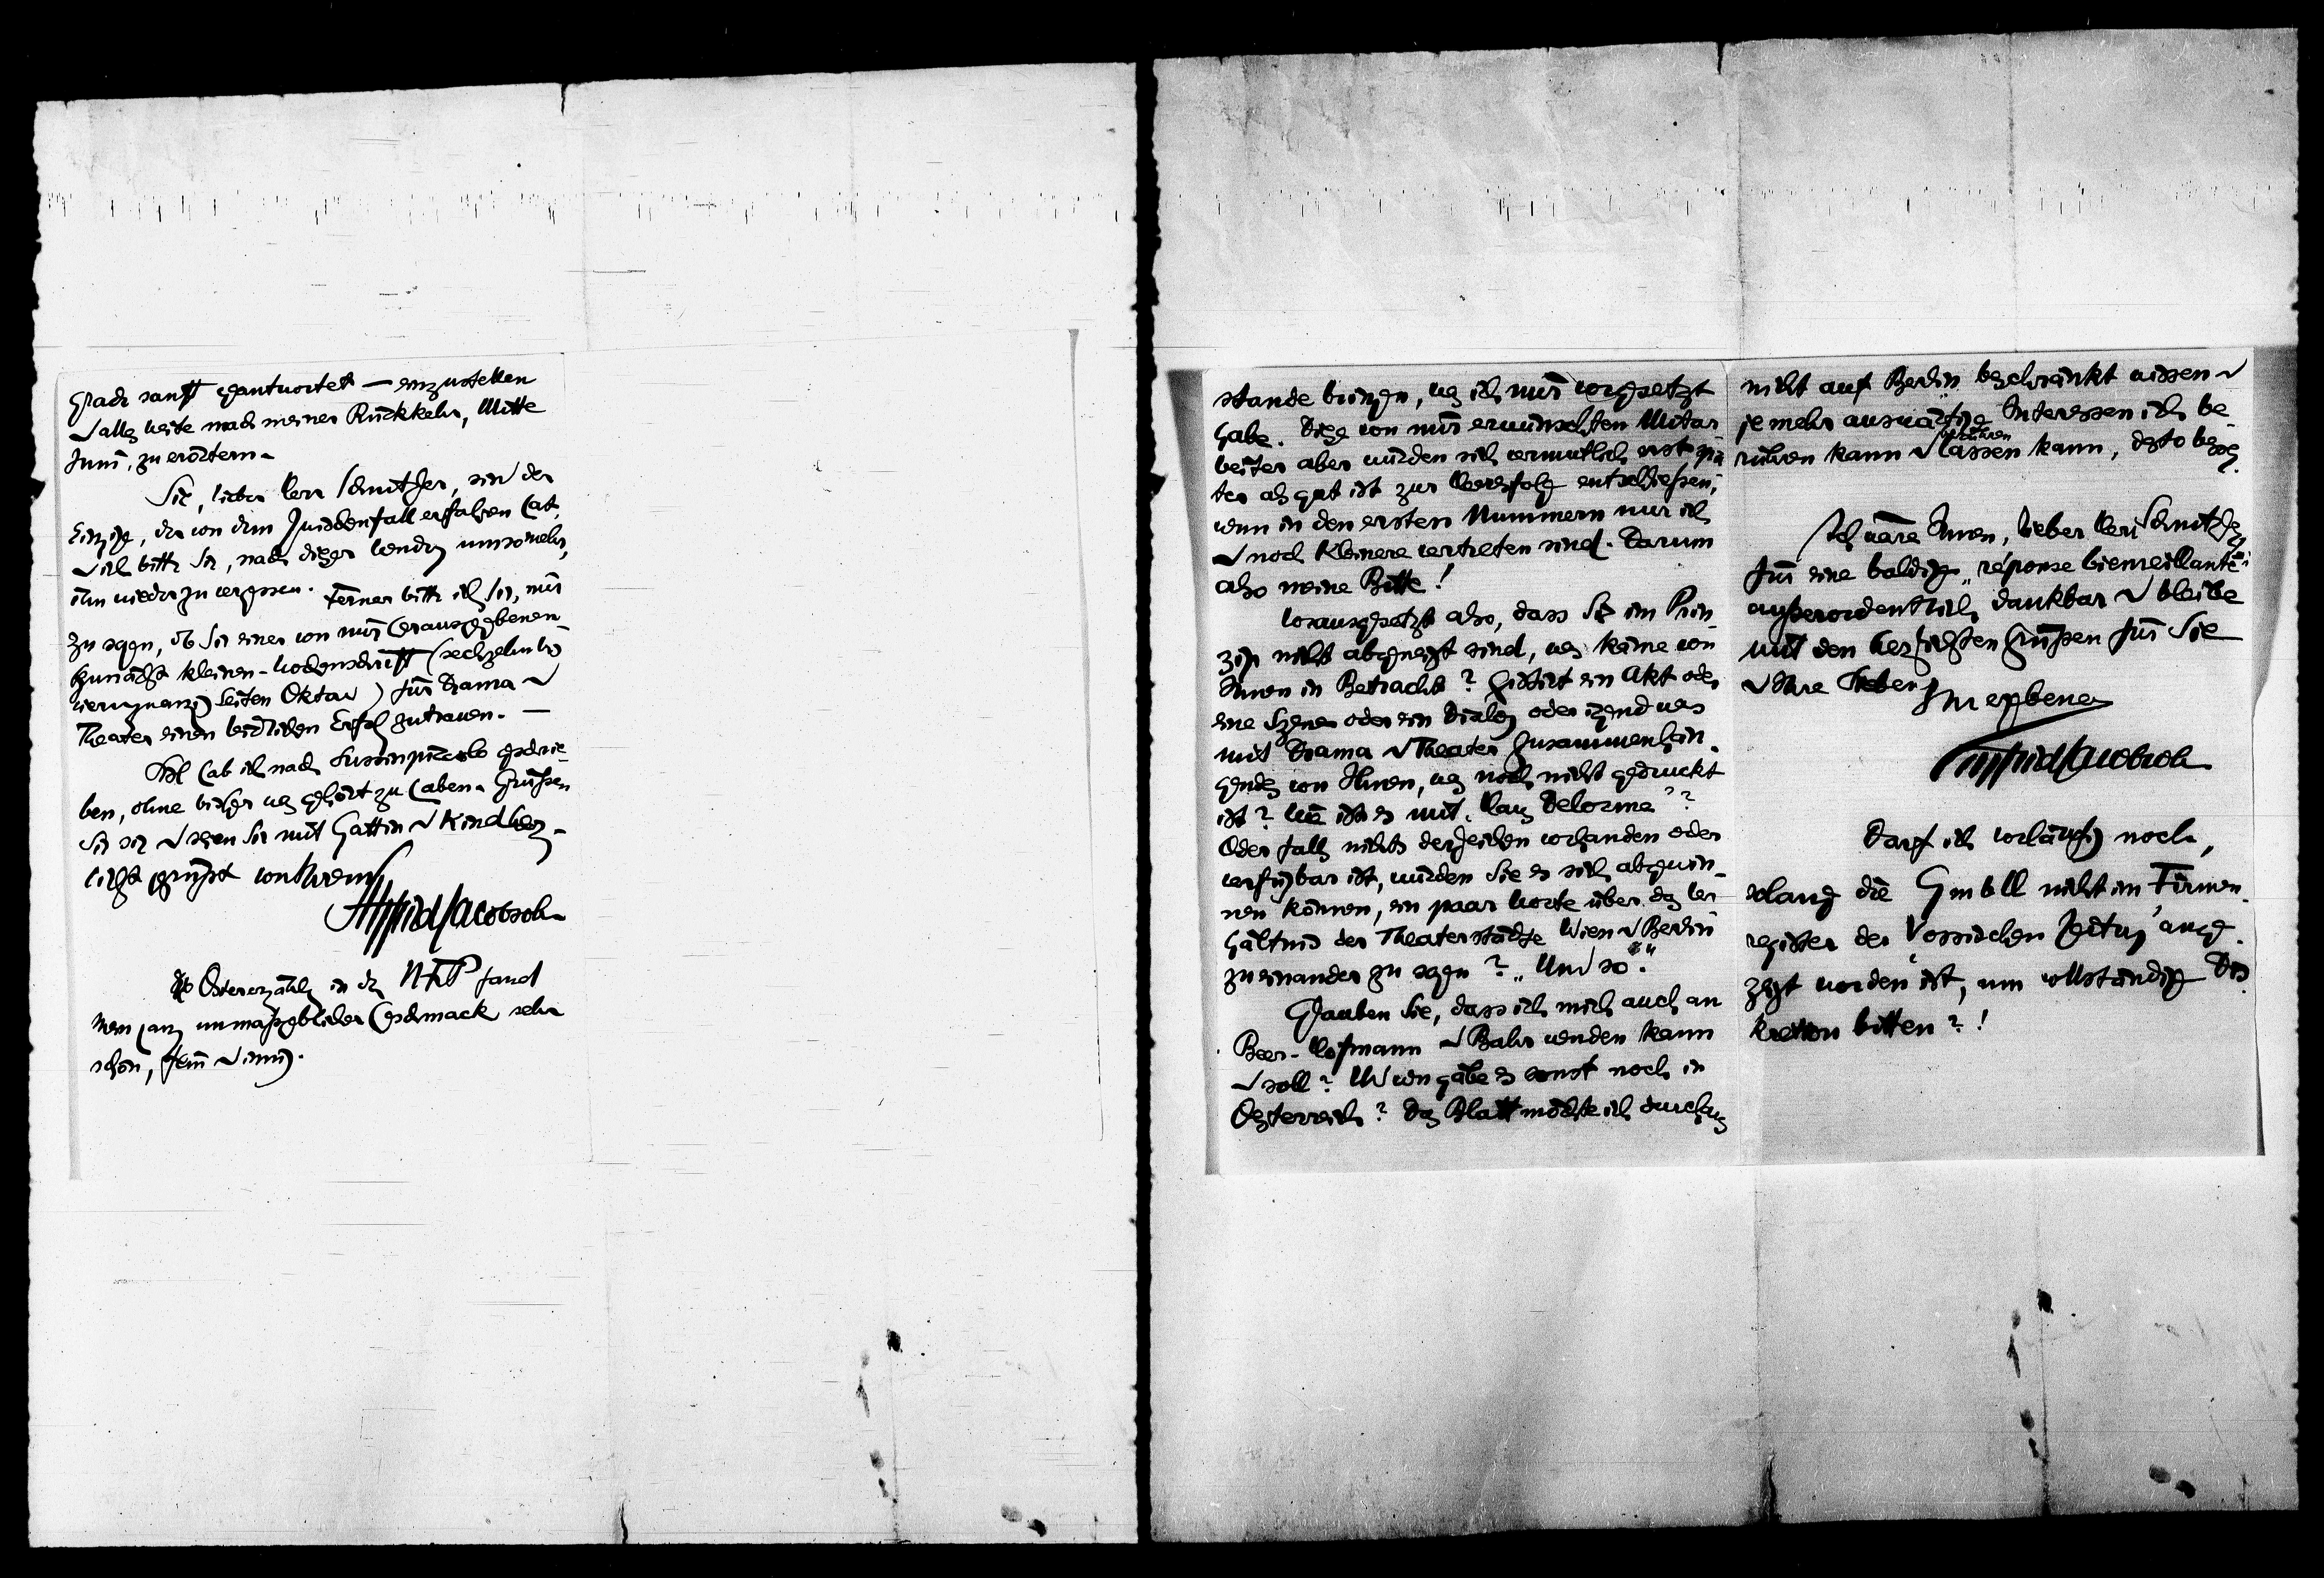 grade sanft geantwortet — einzustellen
u alles weitre nach meiner Rückkehr, Mitte
Juni, zu erörtern.
Sie, lieber Herr Schnitzler, sin der
Einzige, der von dem Zwischenfall erfahren hat,
u ich bitte Sie, nach dieser Wendg umsomehr,
ihn wieder zu vergessen. Ferner bitte ich Sie, mir
zu sagen, ob Sie einer von mir herausgegebenen
(zunächst kleinen - Wochenschrift (sechzehn bis
vierundzwanzig Seiten Oktav) für Drama u
Theater einen leidlichen Erfolg zutrauen. —
Salt hab ich nach Lussinpiccolo geschrie-
ben, ohne bisher was gehört zu haben. Grüssen
Sie sie u seien Sie mit Gattin u Kind herz-
lichst gegrüsst von Ihrem
Siegfried Jacobsohn
Die Ostererzählg in der NFP fand
mein ganz unmaßgeblicher Geschmack sehr
schön, fein u innig.
stande bringen, was ich mir vorgesetzt
habe. Diese von mir erwünschten Mitar
beiter aber würden sich vermutlich erst spä
ter als gut ist zur Heeresfolge entschließen,
wenn in den ersten Nummern nur ich
u noch Kleinere vertreten sind. Darum
also meine Bitte!
Vorausgesetzt also, dass Sie im Prin-
zip nicht abgeneigt sind, was käme von
Ihnen in Betracht? Existirt ein Akt oder
eine Szene oder ein Dialog oder irgend was
mit Drama u Theater Zusammenhän-
gendes von Ihnen, was noch nicht gedruckt
ist? Wie ist es mit „Haus Delorme"?
Oder falls nichts derzeichen vorhanden oder
verfügbar ist, würden Sie es sich abgewin-
nen können, ein paar Worte über das Ver
hältnis der Theaterstädte Wien u Berlin
zueinander zu sagen? „Und so".
Glauben Sie, dass ich mich auch an
Beer-Hofmann u Bahr wenden kann
u soll? U wen gäbe es sonst noch in
Oesterreich? Das Blatt möchte ich durchaus
nicht auf Berlin beschränkt wissen u
je mehr auswärtige Interessen ich be-
rühren kann u berühren lassen kann, desto besser.
Ich wäre Ihnen, lieber Herr Schnitzler,
für eine baldige „réponse bienveillante"
außerordentlich dankbar u bleibe
mit den herzlichsten Grüßen für Sie
u Ihre Lieben
Ihr ergebener
Siegfried Jacobsohn
Darf ich vorläufig noch,
solang die GmbH nicht im Firmen-
register der Vossischen Zeitung ange
zeigt worden ist, um vollständige Dis
kretion bitten?!